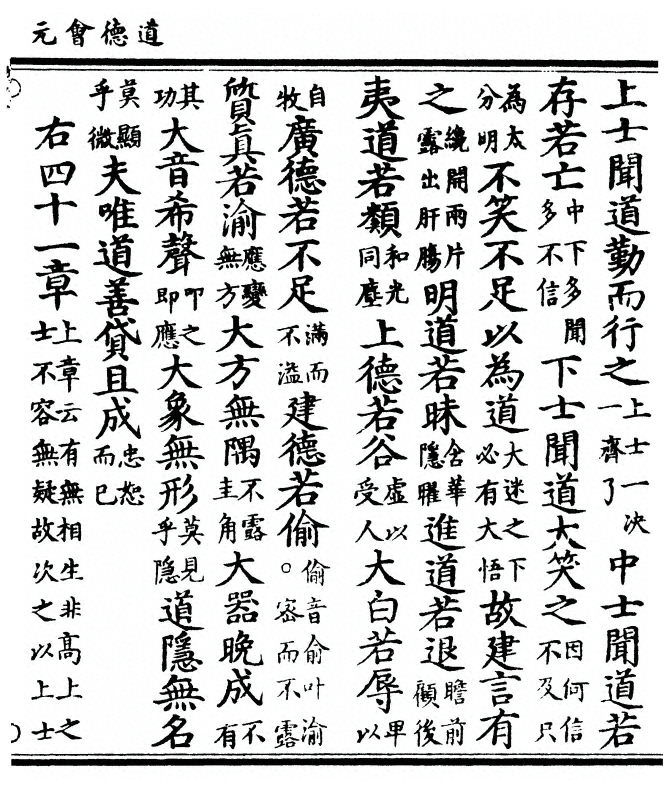 道德會元
上士聞道勤而行之上士一决一齊了中士聞道若
存若亡中下多聞多不信下士聞道大笑之因何信不及只
為太分明不笑不足以為道大迷之下必有大悟故建言有
之纔開兩片露出肝膓明道若昧含華隱曜進道若退瞻前顧後
夷道若纇和光同塵上德若谷虛以受人大白若辱卑以
自牧廣德若不足滿而不溢建德若偷。偷音俞叶渝密而不露
質真若渝應變無方大方無隅不露圭角大器晚成不有
其功大音希聲叩之即應大象無形莫見乎隱道隱無名
莫顯乎微夫唯道善貸且成忠恕而已
右四十一章上章云有無相生非高上之士不容無疑故次之以上士